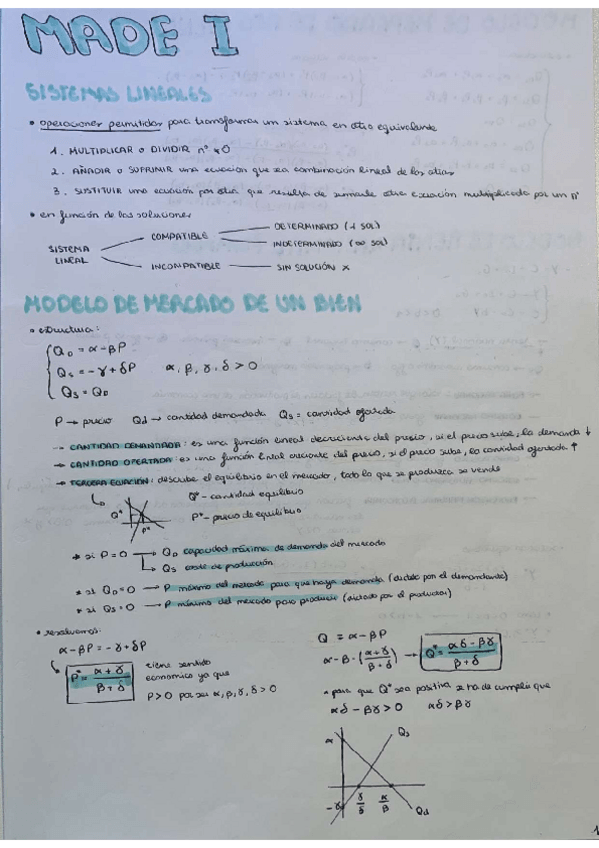 MADE I
SISTEMAS LINEALES
• operaciones permitidas para transformar un sistema en otro equivalente
1. MULTIPLICAR o DIVIDIR nº ≠ 0
2. AÑADIR o SUPRIMIR una ecuacion que sea combinación lineal de las otras
3. SUSTITUIR una ecuación por otra que resulta de sumarle otra ecuación multiplicada por un nº
• en función de las soluciones
SISTEMA LINEAL
COMPATIBLE
DETERMINADO (1 sol)
INDETERMINADO (∞ sol)
INCOMPATIBLE
SIN SOLUCIÓN x
MODELO DE MERCADO DE UN BIEN
• estructura:
Q_D = α - βP
Q_S = -γ + δP α, β, γ, δ > 0
Q_S = Q_D
P → precio Qd → cantidad demandada Qs = cantidad ofertada
→ CANTIDAD DEMANDADA: es una función lineal decreciente del precio, si el precio sube, la demanda ↓
→ CANTIDAD OFERTADA: es una función lineal creciente del precio, si el precio sube, la cantidad ofertada ↑
→ TERCERA ECUACIÓN: describe el equilibrio en el mercado, todo lo que se produzca se vende
Q* - cantidad equilibrio
P* - precio de equilibrio
Q*
P*
* si P = 0 → Q_D capacidad máxima de demanda del mercado
Q_S coste de producción
* si Q_D = 0 → P máximo del mercado para que haya demanda (dictado por el demandante)
* si Q_S = 0 → P mínimo del mercado para producir (dictado por el productor)
• resolvemos:
α - βP = -γ + δP
P* = (α + γ)/(β + δ)
tiene sentido
economico ya que
P > 0 por ser α, β, γ, δ > 0
Q = α - βP
α - β · ((α + γ)/(β + δ)) → Q* = (αδ - βγ)/(β + δ)
* para que Q* sea positiva se ha de cumplir que
αδ - βγ > 0 αδ > βγ
α
Qs
-γ
γ/δ
α/β
Qd
1